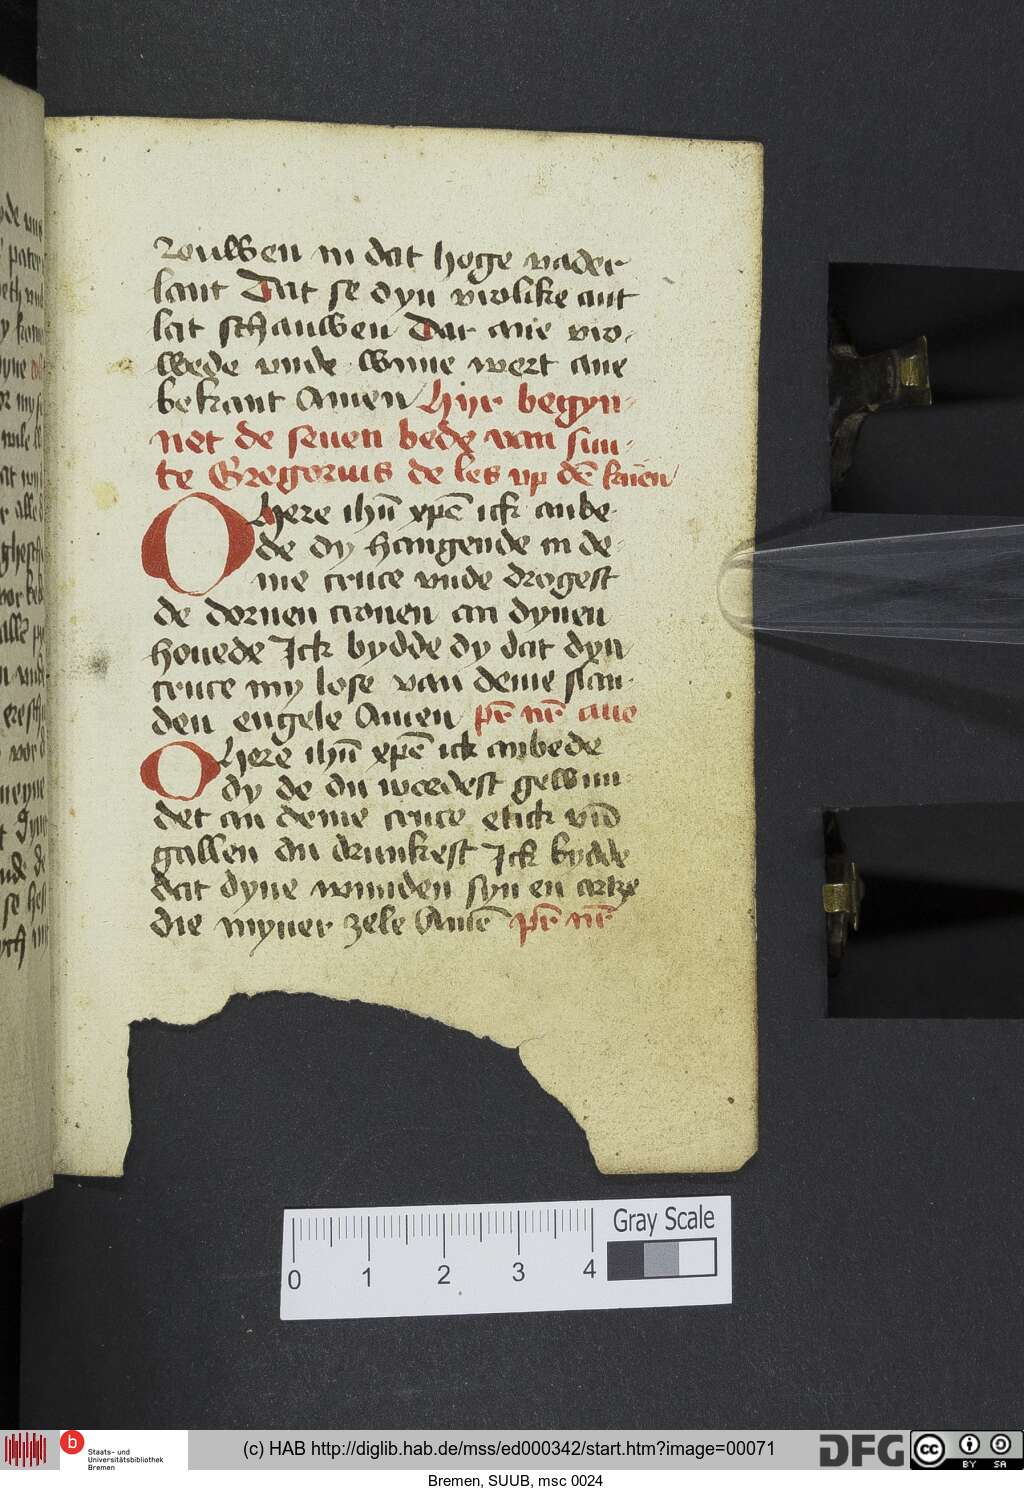 rouwen in dat hoge vader
lant Dat se dyn vrolike ant
lat schauwen Dar ane vro-
wede vnde wnne wert ane
bekant Amen Hyr begyn-
net de seuen bede van sun-
te Gregorius de les vp dē
O here ihū xpē ick anbe-
de dy hangende in de-
me cruce vnde drogest
de dornen cronen an dynen
houede Ick bydde dy dat dyn
cruce my lose van deme slan-
den engele Amen pr̄ nr̄ aue
O here ihū xpē ick anbede
dy de du wordest gewun-
det an deme cruce etick vn̄
gallen du drunkest Ick bydde
dat dyne wunden syn en artze
die myner zele Amē pr̄ nr̄
0 1 2 3 4 Gray Scale
b Staats- und
Universitätsbibliothek
Bremen
(c) HAB http://diglib.hab.de/mss/ed000342/start.htm?image=00071
DFG cc BY SA
Bremen, SUUB, msc 0024